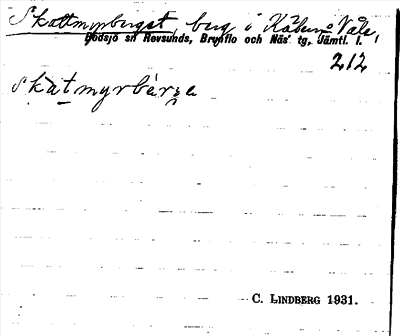 Skattmyrberget, berg i Kälens Våle,
Bodsjö sn Revsunds, Brunflo och Näs tg, Jämtl. l.
212
skàtmyrbærje
C. LINDBERG 1931.